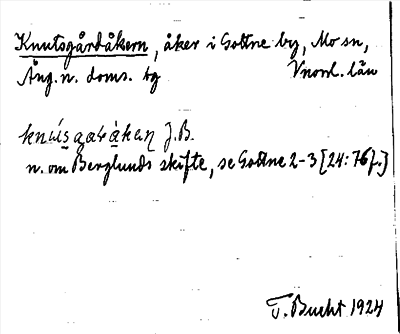 Knutsgårdåkern, åker i Gottne by, Mo sn,
Ång. n. doms. tg Vnorrl. län
knúsgaràkaṇ J.B.
n. om Berglunds skifte, se Gottne 2-3 [24: 76f.]
T. Bucht 1924